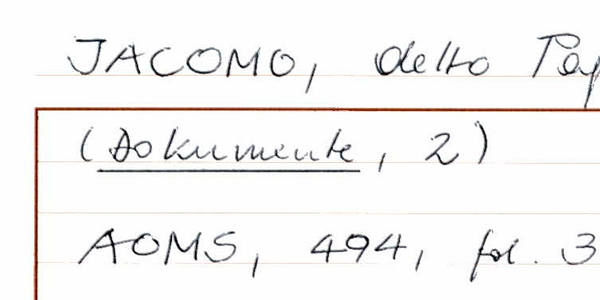 JACOMO, detto
(Dokumente, 2)
AOMS, 494, fol. 3